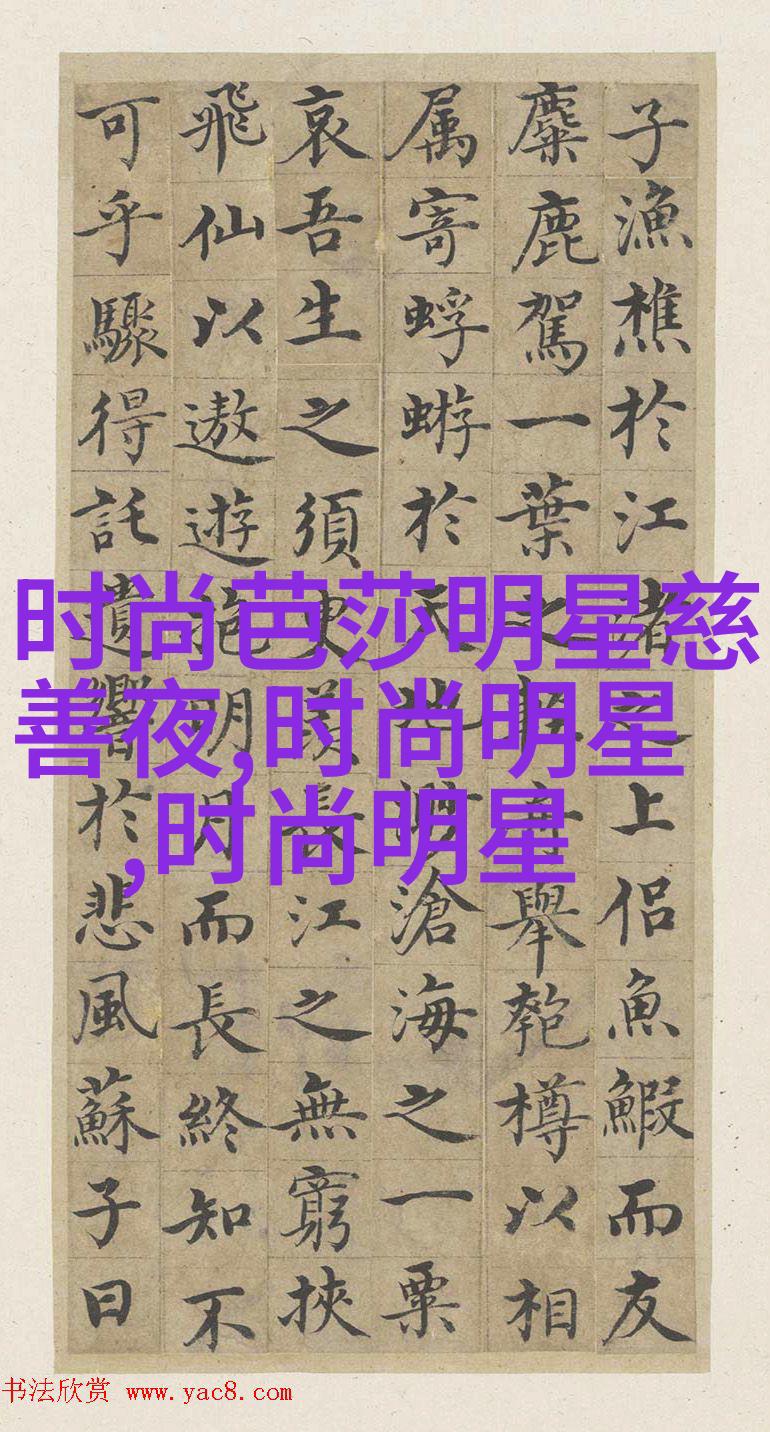 子漁樵於江渚之上侶魚鰕而友
麋鹿駕一葉之舟舉匏樽以相
属寄蜉蝣於天地渺滄海之一粟
哀吾生之須臾羨長江之無窮挾
飛仙以遨遊抱明月而長終知不
可乎驟得託遺響於悲風蘇子曰
时尚芭莎明星慈
善夜,时尚明星
,时尚明星
书法欣赏 www.yac8.com